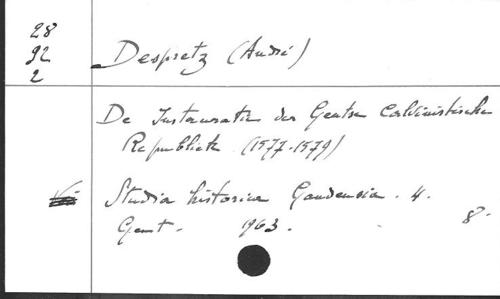 28
92
2
Despretz (André)
De Instauratie der Gentse Calvinistische
Republiek (1577-1579)
Studia historica Gandensia. 4.
Gent. 1963. 8.